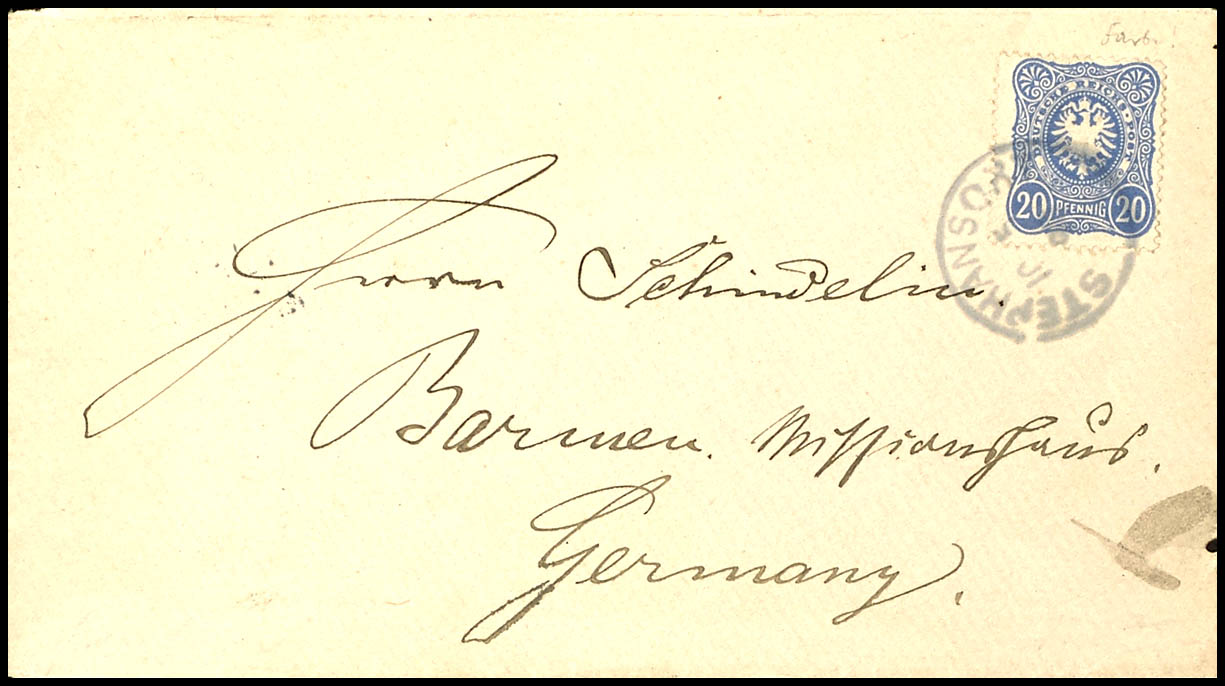 Farb.
DEUTSCHE REICHS-POST
20 PFENNIG 20
STEPHANSORT
Herrn Schindelin.
Barmen. Missionshaus.
Germany.